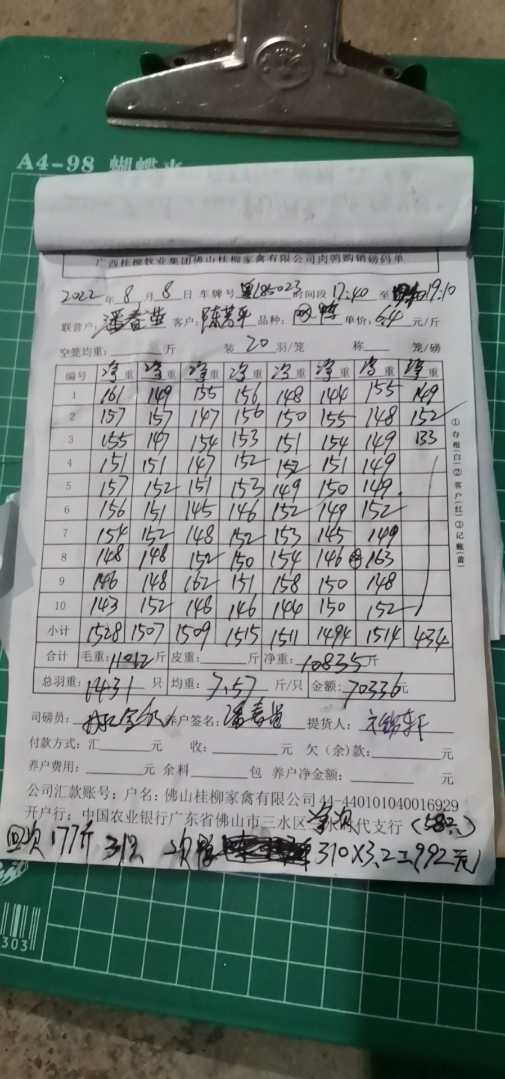 A4-98 蝴蝶夹
广西桂柳牧业集团佛山桂柳家禽有限公司肉鸭购销磅码单
2022年8月8日 车牌号 时间段 17:40 至 19:10
联营户: 客户: 品种: 单价: 6.4 元/斤
空笼均重: 斤 装 20 羽/笼 称 笼/磅
编号 净重 净重 净重 净重 净重 净重 净重 净重
1 161 149 155 156 148 144 155 149
2 157 157 147 150 150 155 148 152
3 155 147 154 153 151 154 149 133
4 151 151 147 152 152 151 149
5 157 152 151 153 149 150 149
6 156 151 145 146 152 149 152
7 154 152 148 152 153 145 149
8 148 148 152 150 154 146 163
9 146 148 162 151 158 150 148
10 143 152 148 146 144 150 152
小计 1528 1507 1509 1515 1511 1494 1514 434
合计 毛重: 11012 斤 皮重: 斤 净重: 10835 斤
总羽重: 1431 只 均重: 7.57 斤/只 金额: 70336 元
司磅员: 养户签名: 提货人:
付款方式: 汇 元 收: 元 欠(余)款: 元
养户费用: 元 余料 包 养户净金额: 元
公司汇款账号: 户名: 佛山桂柳家禽有限公司 41-440101040016929
开户行: 中国农业银行广东省佛山市三水区 代支行 (58只)
次 177斤 310×3.2=992元
①存根(白)②客户(红)③记账(黄)
303